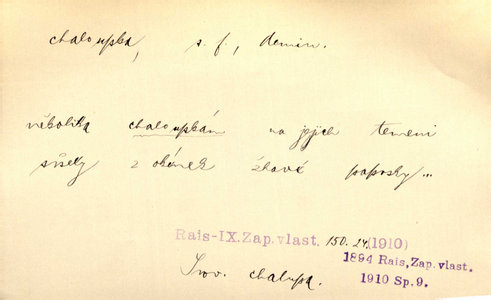 chaloupka, s. f., demin.
několika chaloupkám na jejich temeni
svítely z okének žhavé paprsky...
Rais-IX.Zap.vlast. 150.24.(1910)
1894 Rais, Zap. vlast.
1910 Sp. 9.
Srov. chalupa.